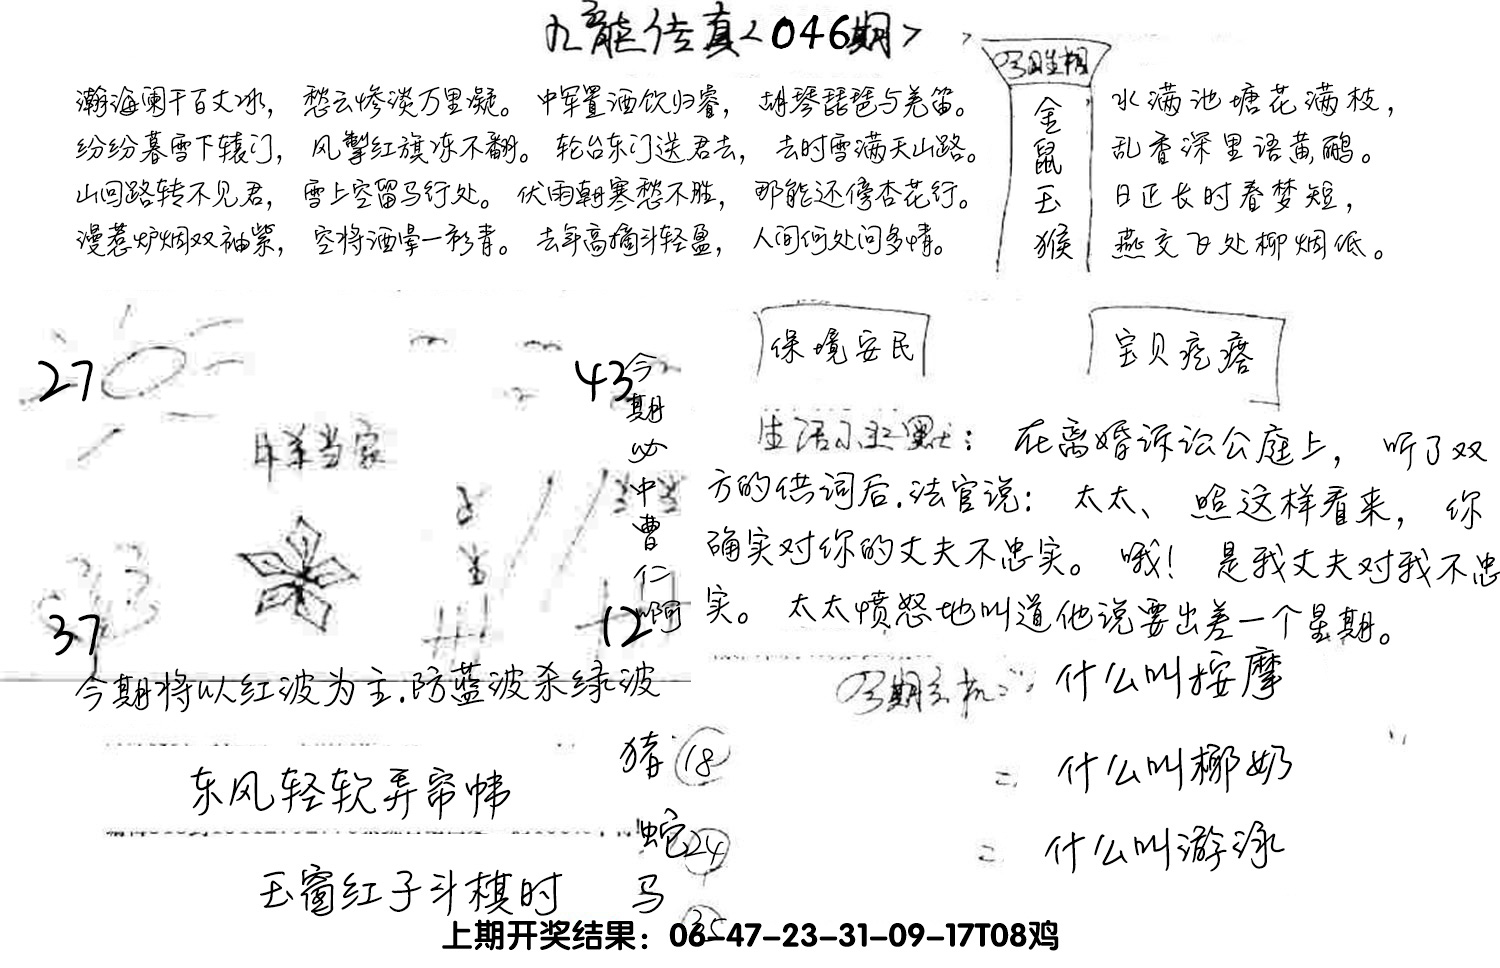 九龙传真<046期>
今日生相
金鼠玉猴
瀚海阑干百丈冰， 愁云惨淡万里凝。 中军置酒饮归客， 胡琴琵琶与羌笛。
纷纷暮雪下辕门， 风掣红旗冻不翻。 轮台东门送君去， 去时雪满天山路。
山回路转不见君， 雪上空留马行处。 伏雨朝寒愁不胜， 那能还傍杏花行。
漫惹炉烟双袖紫， 空将酒晕一衫青。 去年高摘斗轻盈， 人间何处问多情。
水满池塘花满枝，
乱香深里语黄鹂。
日正长时春梦短，
燕交飞处柳烟低。
27
43
37
12
今期必中曹仁啊
今期将以红波为主.防蓝波杀绿波
东风轻软弄帘帏
玉窗红子斗棋时
猪 18
蛇 24
马 35
保境安民
宝贝疙瘩
生活小幽默： 在离婚诉讼公庭上， 听了双
方的供词后.法官说： 太太、 照这样看来， 你
确实对你的丈夫不忠实。 哦！ 是我丈夫对我不忠
实。 太太愤怒地叫道他说要出差一个星期。
今期玄机 一： 什么叫按摩
二 什么叫椰奶
二 什么叫游泳
上期开奖结果：06-47-23-31-09-17T08鸡